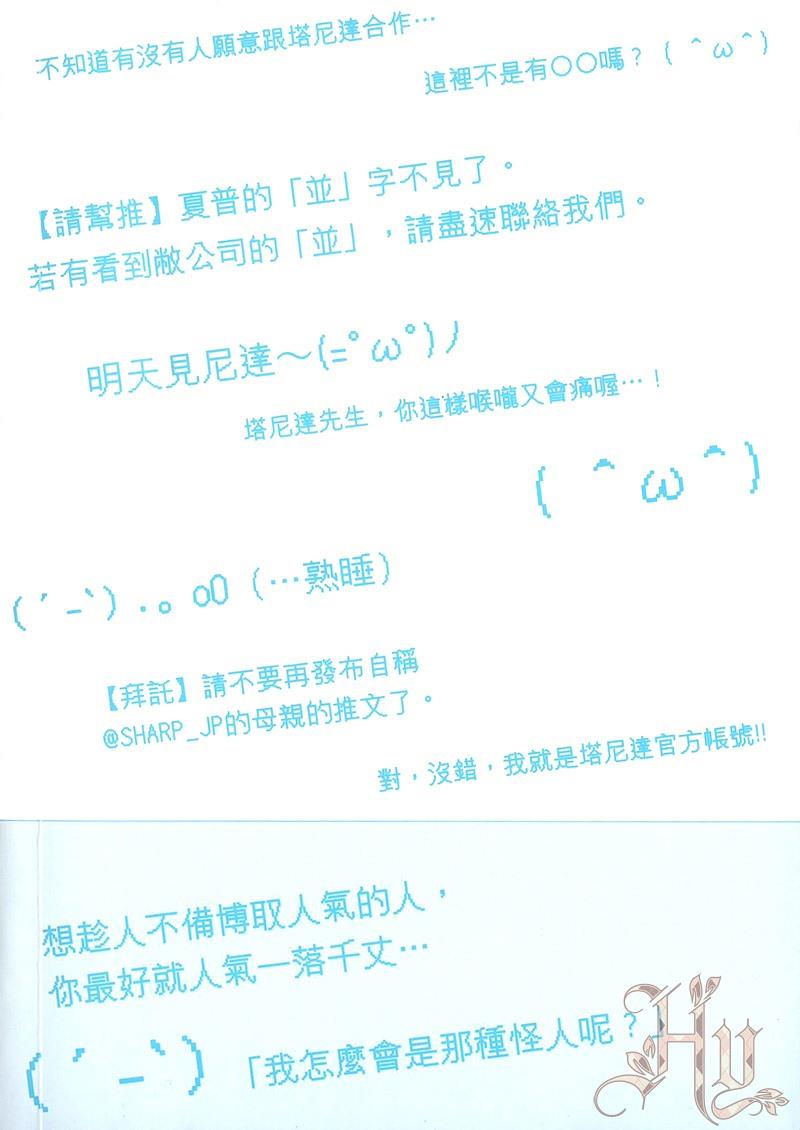 不知道有沒有人願意跟塔尼達合作…
這裡不是有○○嗎？( ＾ω＾)
【請幫推】夏普的「並」字不見了。
若有看到敝公司的「並」，請盡速聯絡我們。
明天見尼達～(=ﾟωﾟ)ノ
塔尼達先生，你這樣喉嚨又會痛喔…！
( ＾ω＾)
(´-`).｡oO（…熟睡）
【拜託】請不要再發布自稱
@SHARP_JP的母親的推文了。
對，沒錯，我就是塔尼達官方帳號!!
想趁人不備博取人氣的人，
你最好就人氣一落千丈…
(´-`)「我怎麼會是那種怪人呢？」
Hy